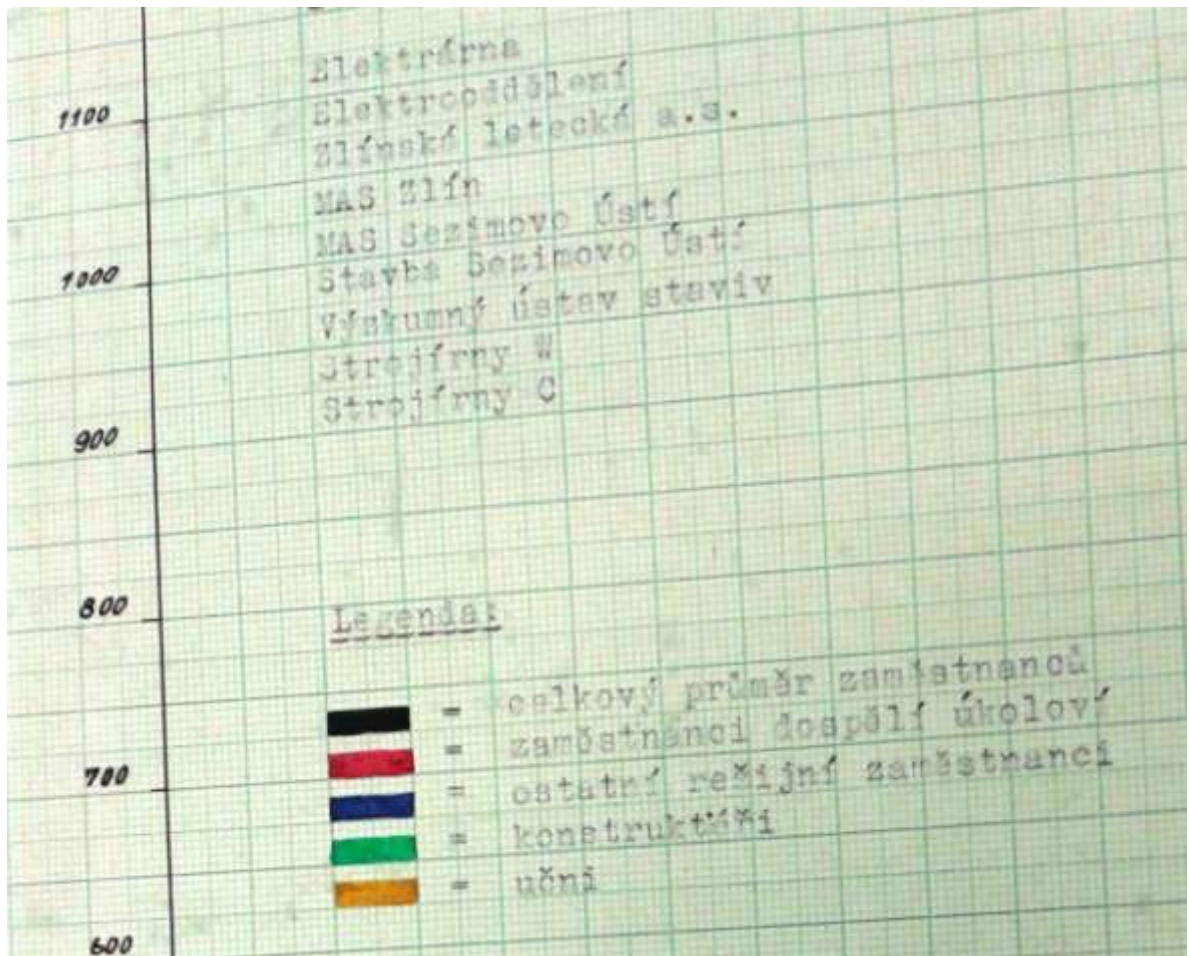 Elektrárna
Elektrooddělení
1100
Zlínská letecká a.s.
MAS Zlín
MAS Sezimovo Ústí
1000
Stavba Sezimovo Ústí
Výzkumný ústav staviv
Strojírny W
Strojírny C
900
800
Legenda:
= celkový průměr zaměstnanců
= zaměstnanci dospělí úkoloví
700
= ostatní režijní zaměstnanci
= konstruktéři
= učni
600